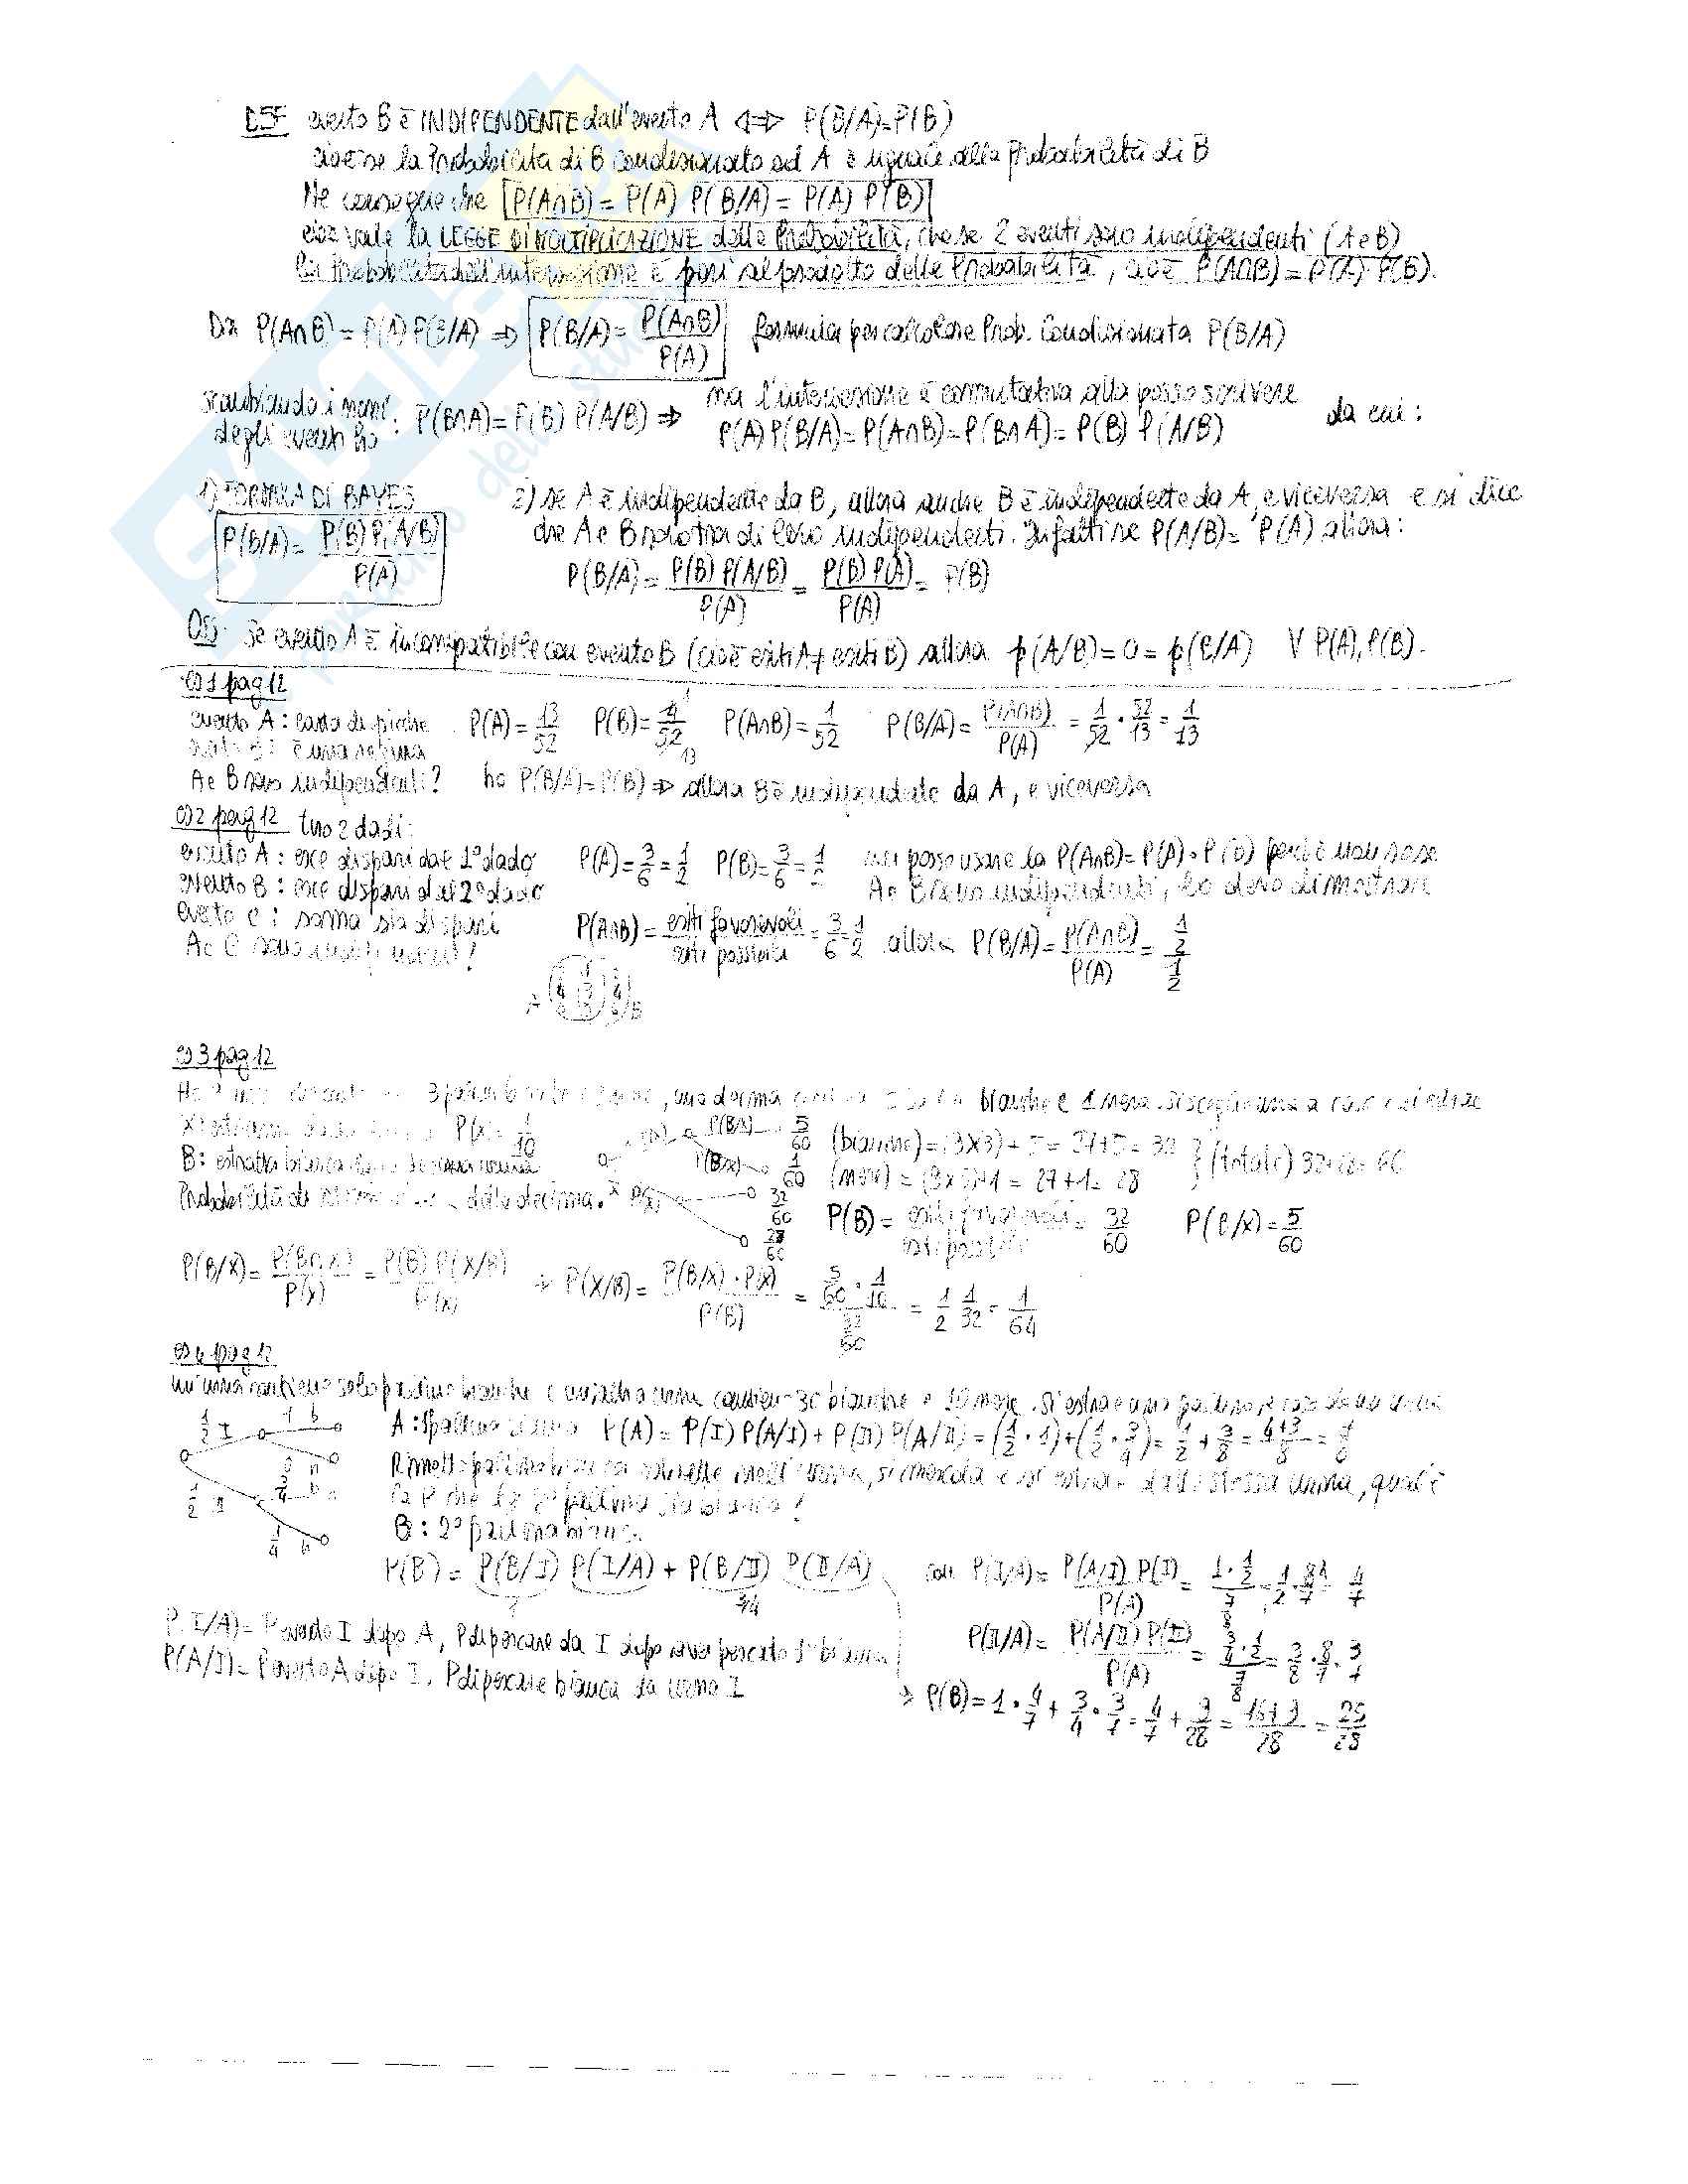 DEF evento B è INDIPENDENTE dall'evento A ⇔ P(B/A)=P(B)
cioè se la Probabilità di B condizionato ad A è uguale alla probabilità di B
Ne consegue che P(A∩B) = P(A) P(B/A) = P(A) P(B)
cioè vale la LEGGE DI MOLTIPLICAZIONE delle Probabilità, che se 2 eventi sono indipendenti (A e B)
la Probabilità dell'intersezione è pari al prodotto delle Probabilità, cioè P(A∩B) = P(A)·P(B).
Da P(A∩B) = P(A) P(B/A) ⇒ P(B/A) = P(A∩B)/P(A) formula per calcolare Prob. Condizionata P(B/A)
scambiando i nomi degli eventi ho : P(B∩A) = P(B) P(A/B) ⇒ ma l'intersezione è commutativa allora posso scrivere
P(A) P(B/A) = P(A∩B) = P(B∩A) = P(B) P(A/B) da cui :
1) FORMULA DI BAYES
P(B/A) = P(B) P(A/B)/P(A)
2) se A è indipendente da B, allora anche B è indipendente da A, e viceversa e si dice
che A e B sono tra di loro indipendenti. Infatti se P(A/B) = P(A) allora:
P(B/A) = P(B) P(A/B)/P(A) = P(B) P(A)/P(A) = P(B)
OSS. se evento A è incompatibile con evento B (cioè esiti A ≠ esiti B) allora p(A/B) = 0 = p(B/A) ∀ P(A), P(B).
es 1 pag 12
evento A : carta di picche P(A) = 13/52 P(B) = 4/52 P(A∩B) = 1/52 P(B/A) = P(A∩B)/P(A) = 1/52 · 52/13 = 1/13
B : è una regina
A e B sono indipendenti? ho P(B/A) = P(B) ⇒ allora B è indipendente da A, e viceversa
es 2 pag 12 tiro 2 dadi:
evento A : esce dispari dal 1° dado P(A) = 3/6 = 1/2 P(B) = 3/6 = 1/2 non posso usare la P(A∩B) = P(A)·P(B) perché non so se
evento B : esce dispari dal 2° dado A e B sono indipendenti, lo devo dimostrare
evento C : somma sia dispari P(A∩B) = esiti favorevoli/esiti possibili = 3/6 = 1/2 allora P(B/A) = P(A∩B)/P(A) =
A e C sono indipendenti?
A B
es 3 pag 12
3 palline, una decima bianche e 1 nera. si sceglie urna a caso
P(X) = 1/10 P(B/X) 5/60 (bianche) = (9x3) + 5 = 27+5 = 32
B : estratta bianca 1/60 (nere) = (9x3)+1 = 27+1 = 28 } (totale) 32+28 = 60
Probabilità di dalla decima. 32/60 28/60 P(B) = esiti favorevoli/esiti possibili = 32/60 P(B/X) = 5/60
P(B/X) = P(B∩X)/P(X) = P(B) P(X/B)/P(X) ⇒ P(X/B) = P(B/X)·P(X)/P(B) = 1/2 1/32 = 1/64
es 4 pag 12
un'urna contiene solo palline bianche e un'altra urna contiene 30 bianche e 10 nere. si estrae una pallina
A : pallina bianca P(A) = P(I) P(A/I) + P(II) P(A/II) = (1/2 · 1) + (1/2 · 3/4) = 1/2 + 3/8 = 4+3/8 = 7/8
Rimetto pallina nell'urna, si mescola e si estrae dalla stessa urna, qual è
la P che la 2° pallina sia bianca?
B : 2° pallina bianca.
P(B) = P(B/I) P(I/A) + P(B/II) P(II/A) 3/4
con P(I/A) = P(A/I) P(I)/P(A) = 4/7
P(I/A) = P evento I dopo A, P di pescare da I dopo aver pescato 1° bianca
P(A/I) = P evento A dopo I, P di pescare bianca da urna I
P(II/A) = P(A/II) P(II)/P(A) = 3/8 · 8/7 = 3/7
⇒ P(B) = 1 · 4/7 + 3/4 · 3/7 = 4/7 + 9/28 = 16+9/28 = 25/28